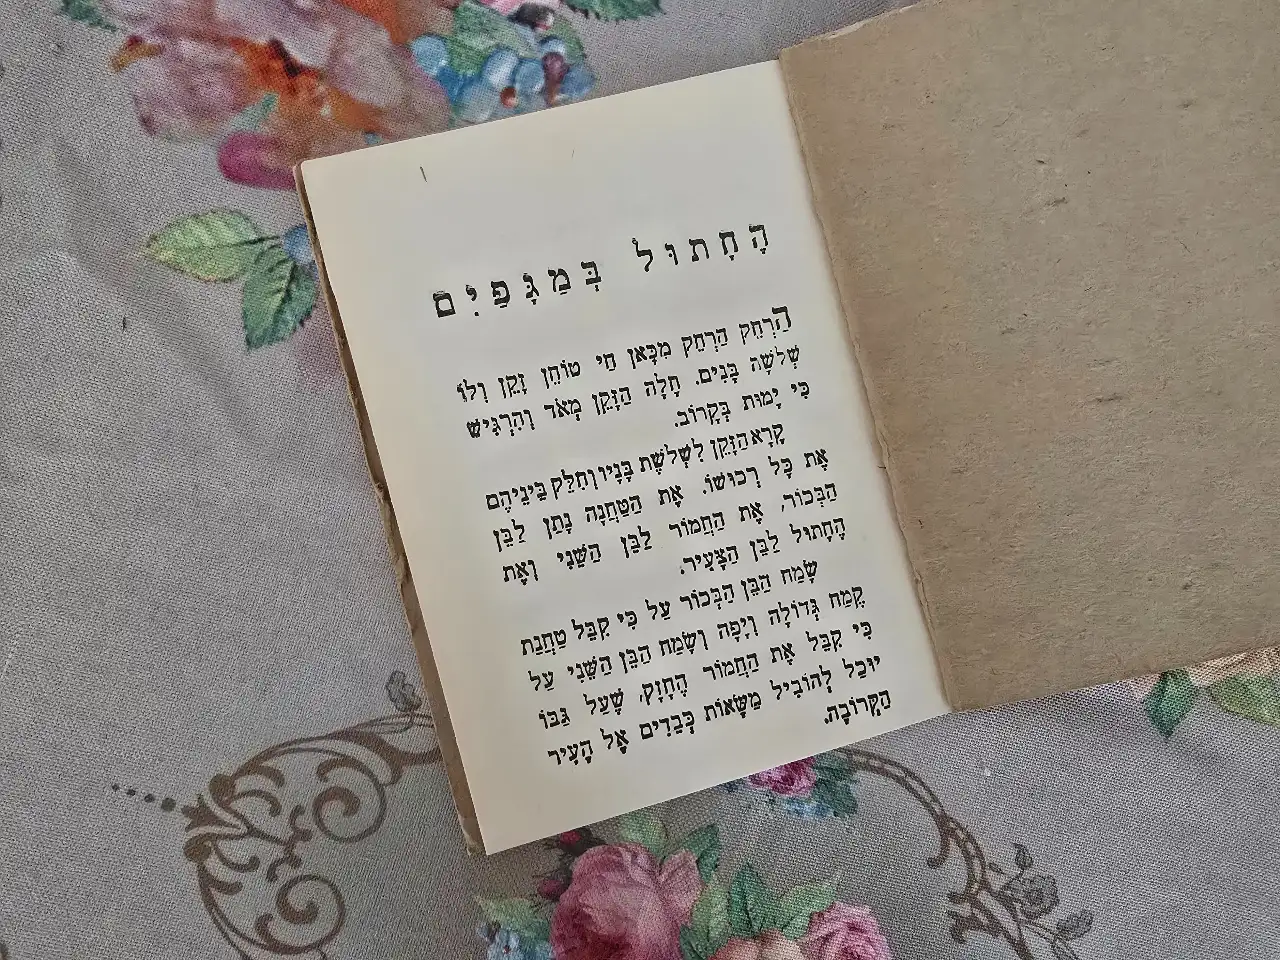 הַחָתוּל בְּמַגָּפַיִם
הַרְחֵק הַרְחֵק מִכָּאן חַי טוֹחֵן זָקֵן וְלוֹ
שְׁלֹשָׁה בָּנִים. חָלָה הַזָּקֵן מְאֹד וְהִרְגִּישׁ
כִּי יָמוּת בְּקָרוֹב.
קָרָא הַזָּקֵן לִשְׁלֹשֶׁת בָּנָיו וְחִלֵּק בֵּינֵיהֶם
אֶת כָּל רְכוּשׁוֹ. אֶת הַטַּחֲנָה נָתַן לַבֵּן
הַבְּכוֹר, אֶת הַחֲמוֹר לַבֵּן הַשֵּׁנִי וְאֶת
הֶחָתוּל לַבֵּן הַצָּעִיר.
שָׂמַח הַבֵּן הַבְּכוֹר עַל כִּי קִבֵּל טַחֲנַת
קֶמַח גְּדוֹלָה וְיָפָה וְשָׂמַח הַבֵּן הַשֵּׁנִי עַל
כִּי קִבֵּל אֶת הַחֲמוֹר הֶחָזָק, שֶׁעַל גַּבּוֹ
יוּכַל לְהוֹבִיל מַשָּׂאוֹת כְּבֵדִים אֶל הָעִיר
הַקְּרוֹבָה.